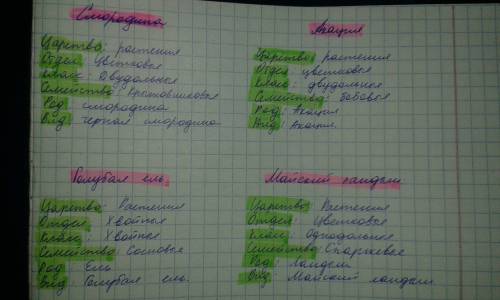 Смородина
Царство: растения
Отдел: цветковое
Класс: Двудольное
Семейство: Крыжовниковое
Род: смородина
Вид: черная смородина
Акация
Царство: растения
Отдел цветковое
Класс: двудольное
Семейство: бобовое
Род: Акация
Вид: Акация.
Голубая ель.
Царство: Растения
Отдел: Хвойные
Класс: Хвойные
Семейство: Сосновые
Род: Ель
Вид: Голубая ель.
Майский ландыш
Царство: Растения
Отдел: Цветковое
Класс: Однодольное
Семейство: Спаржевое
Род: Ландыш
Вид: Майский ландыш